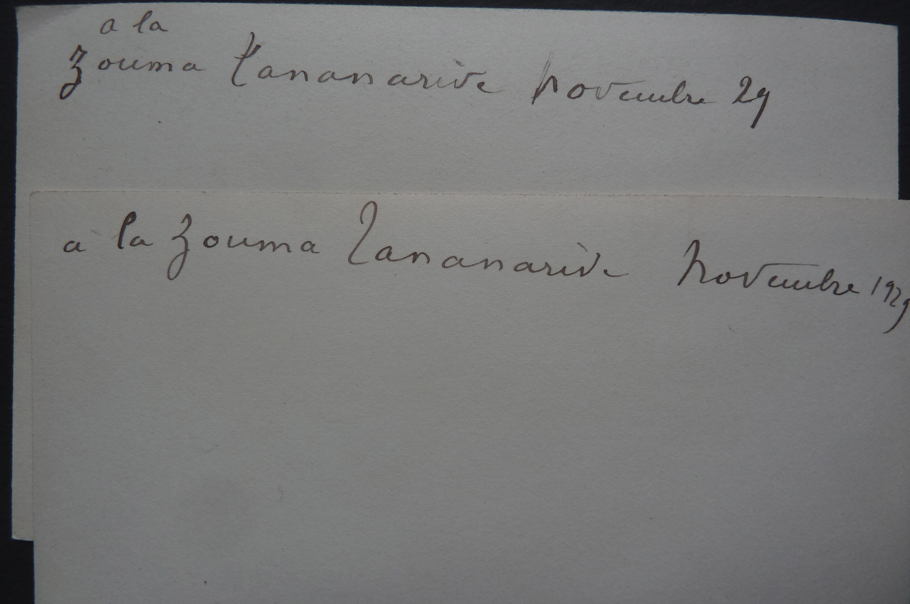 a la
zouma Tananarive Novembre 29
a la zouma Tananarive Novembre 1929